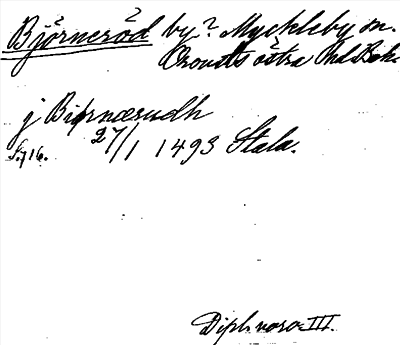 Björneröd by? Myckleby sn.
Orousts östra Hd Boh.
j Biørnærudh
S. 716. 27/1 1493 Stala.
Dipl. norv. III.